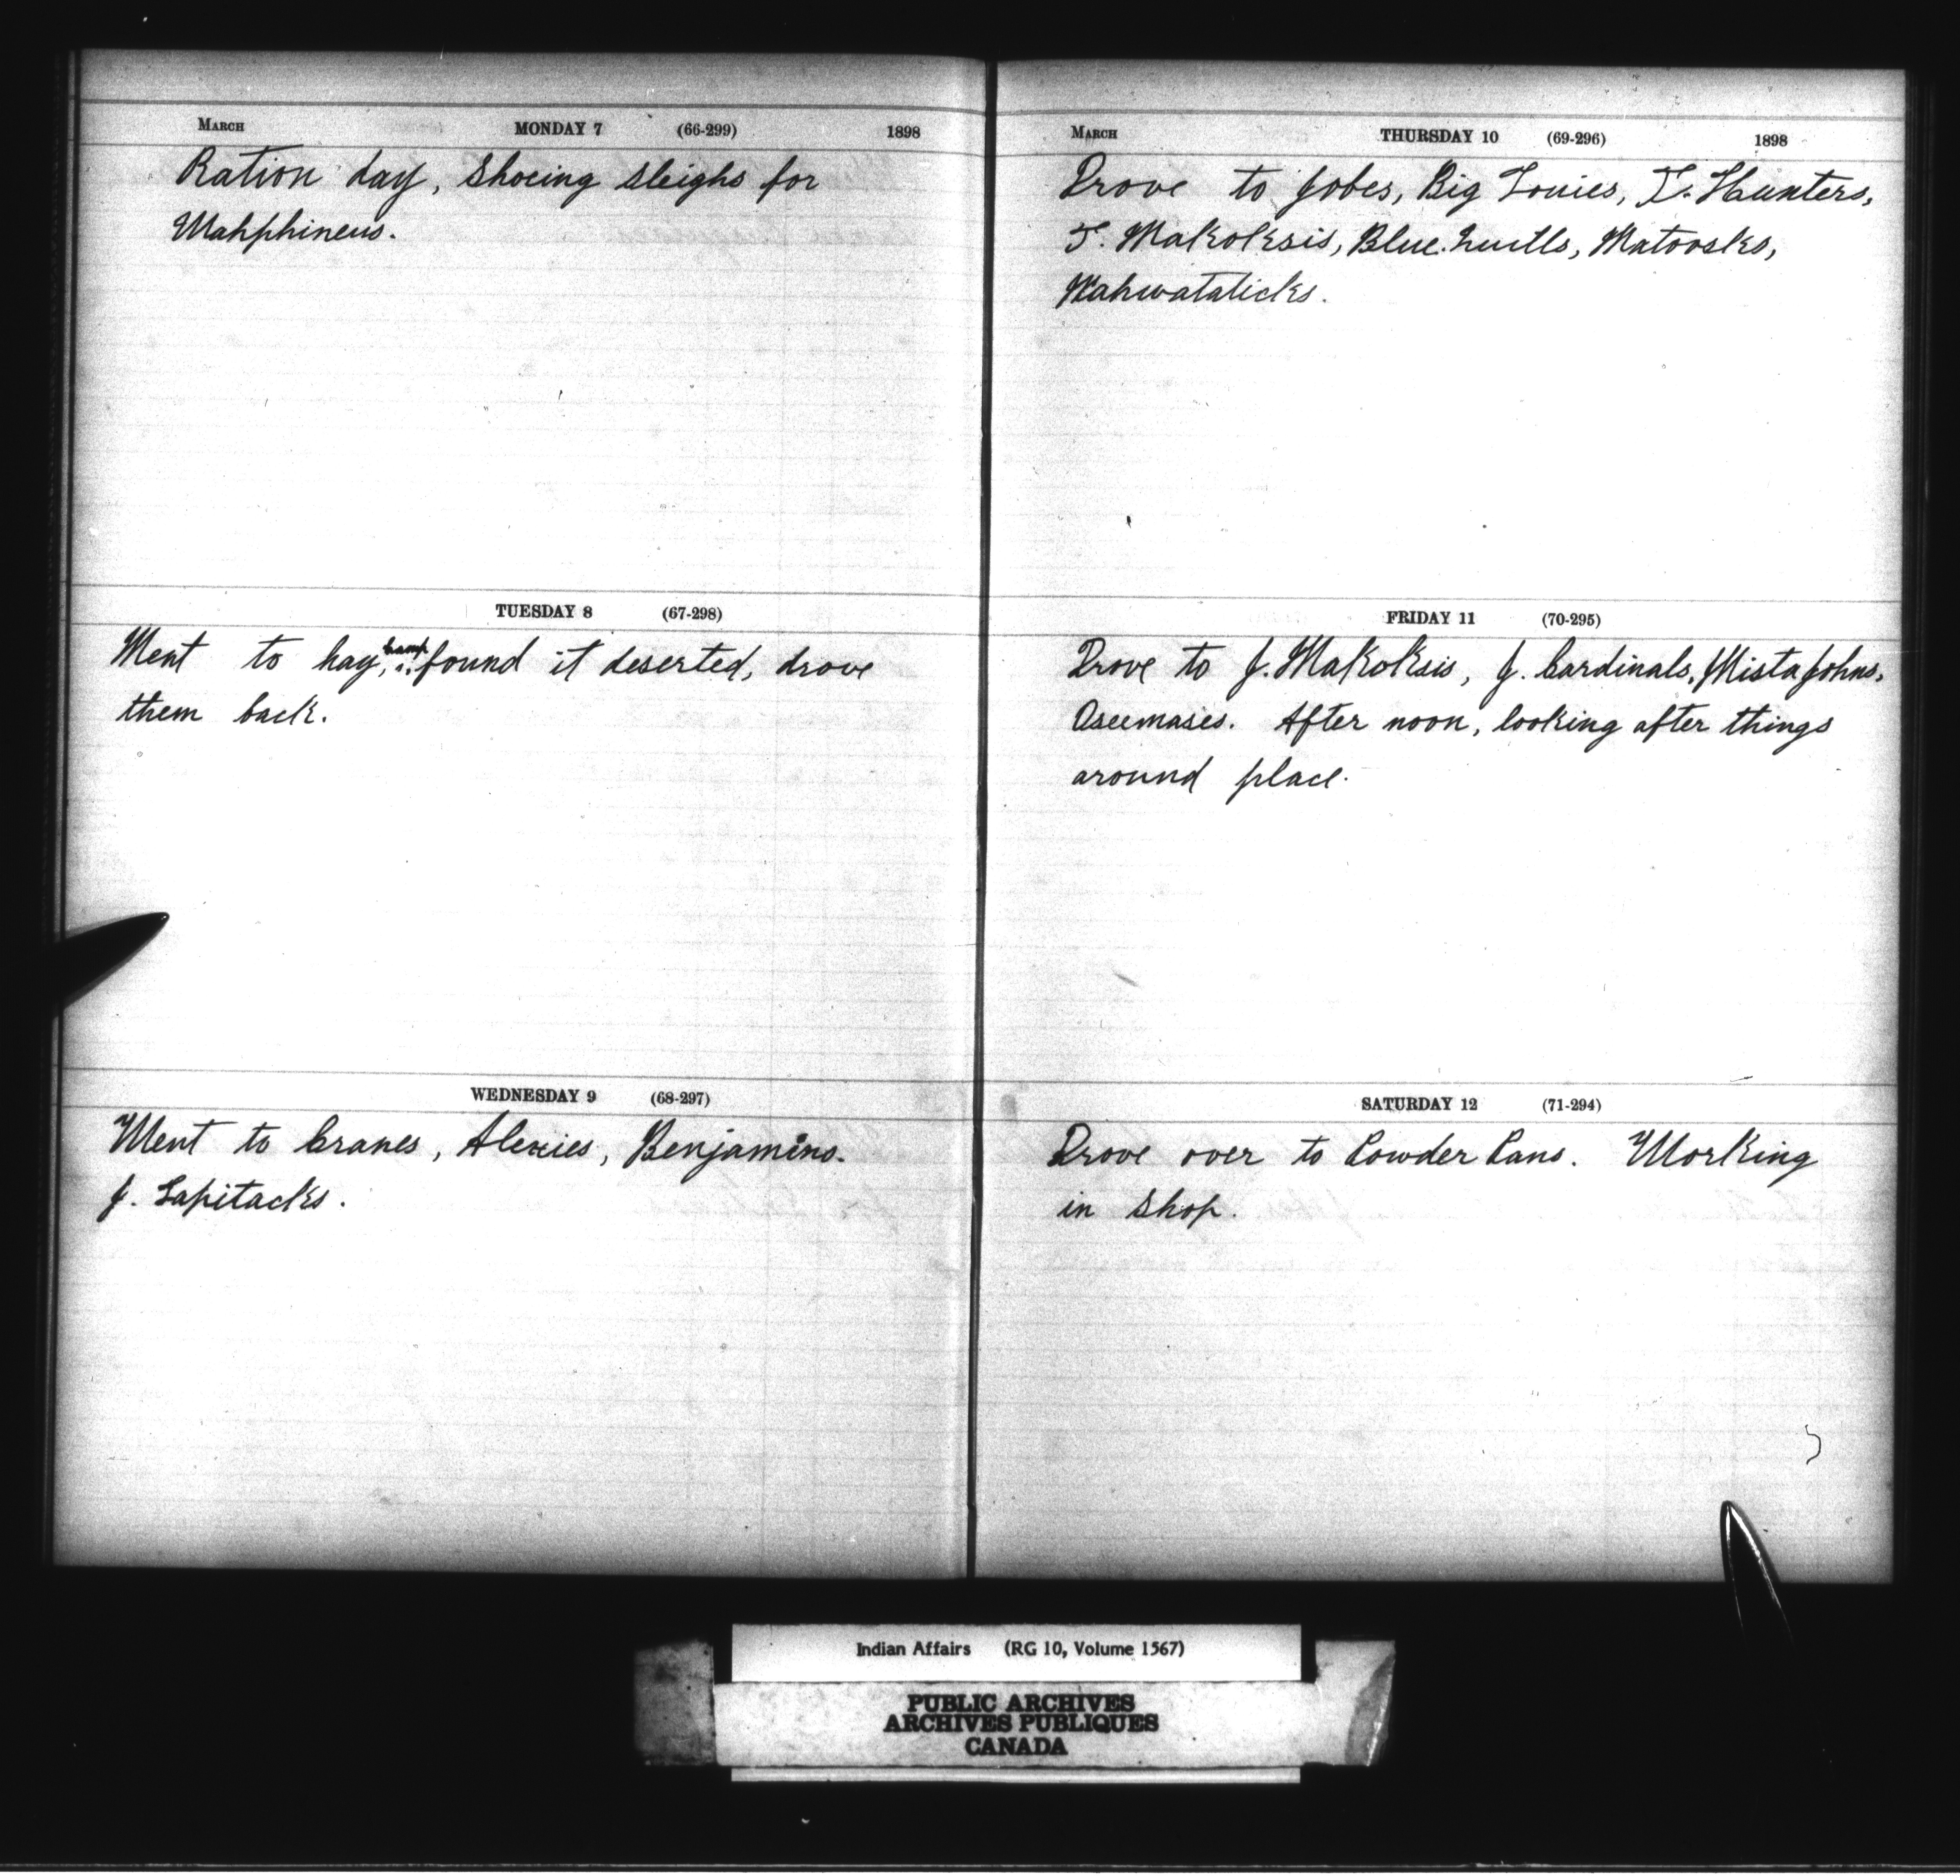 March MONDAY 7 (66-299) 1898
Ration day, Shoeing sleighs for
Wahphineus.
TUESDAY 8 (67-298)
Went to hay camp, found it deserted, drove
them back.
WEDNESDAY 9 (68-297)
Went to Cranes, Alexies, Benjamins.
J. Lapitacks.
March THURSDAY 10 (69-296) 1898
Drove to Jobes, Big Louies, T. Hunters,
T. Makoksis, Blue Quills, Matoosks,
Kahwataticks.
FRIDAY 11 (70-295)
Drove to J. Makoksis, J. Cardinals, Mista Johns,
Aseemases. After noon, looking after things
around place.
SATURDAY 12 (71-294)
Drove over to Powder Pans. Working
in Shop.
Indian Affairs (RG 10, Volume 1567)
PUBLIC ARCHIVES
ARCHIVES PUBLIQUES
CANADA